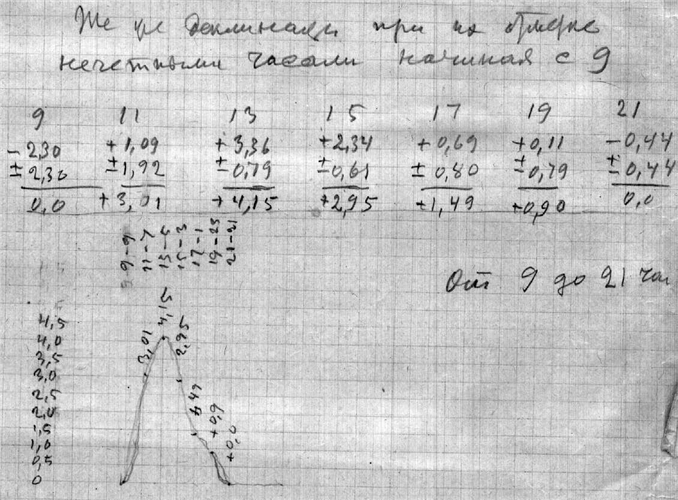 Же де деклинации при их отмерке
нечетными часами начиная с 9
9 11 13 15 17 19 21
- 2,30 + 1,09 + 3,36 +2,34 +0,69 +0,11 -0,44
± 2,30 ± 1,92 ± 0,79 ± 0,61 ± 0,80 ± 0,79 ± 0,44
0,0 + 3,01 + 4,15 +2,95 +1,49 +0,90 0,0
9-9
11-7
13-5
15-3
17-1
19-23
21-21
От 9 до 21 час
4,5
4,0
3,5
3,0
2,5
2,0
1,5
1,0
0,5
0
3,01
4,15
2,95
1,49
+0,9
+0,0